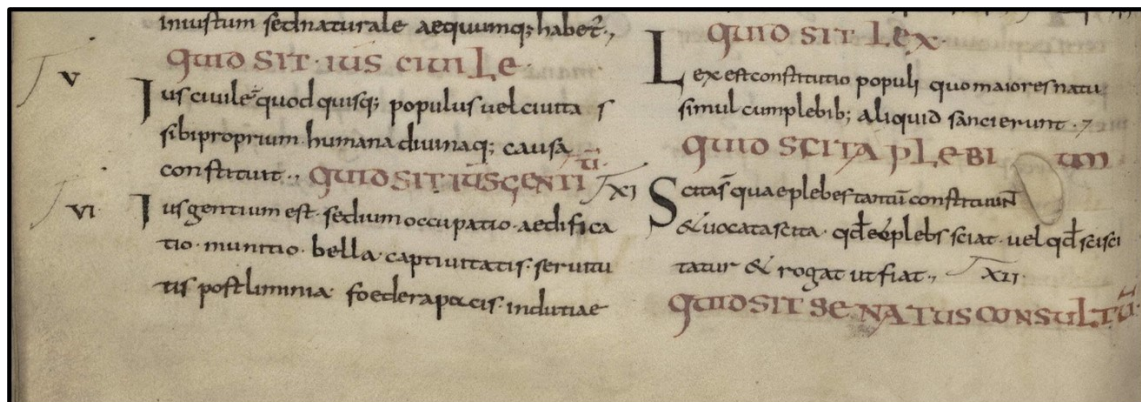 iniustum sed naturale aequumq; habet᷑.,
QUID SIT · IUS CIUILE ·
V
Ius ciuile ē quod quisq; populus uel ciuita s
sibi proprium humana diuinaq; causa
constituit ., QUID SIT IUS GENTIŪ ·
VI
Ius gentium est · sedium occupatio · aedifica
tio · munitio · bella · captiuitatis · seruitu
tis postliminia foedera pacis · indutiae
QUID SIT LEX ·
Lex est constitutio populi quo maiores natu
simul cum plebib; aliquid sancierunt · 7
QUID SCITA PLEBI UM
XI
Scita s̄ quae plebes tantū constituunt
& uocata scita · qđ ea plebs sciat · uel qđ scisci
tatur & rogat ut fiat ., XII ·
QUID SIT SENATUS CONSULTŪ ·